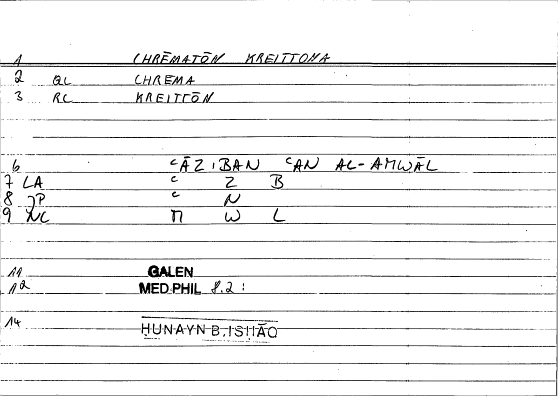 1 CHRĒMATŌN KREITTONA
2 QL CHREMA
3 RC KREITTŌN
6 ʿĀZIBAN ʿAN AL-AMWĀL
7 LA ʿ Z B
8 JP ʿ N
9 NC M W L
11 GALEN
12 MED.PHIL 8.2:
14 ḤUNAYN B. ISḤĀQ